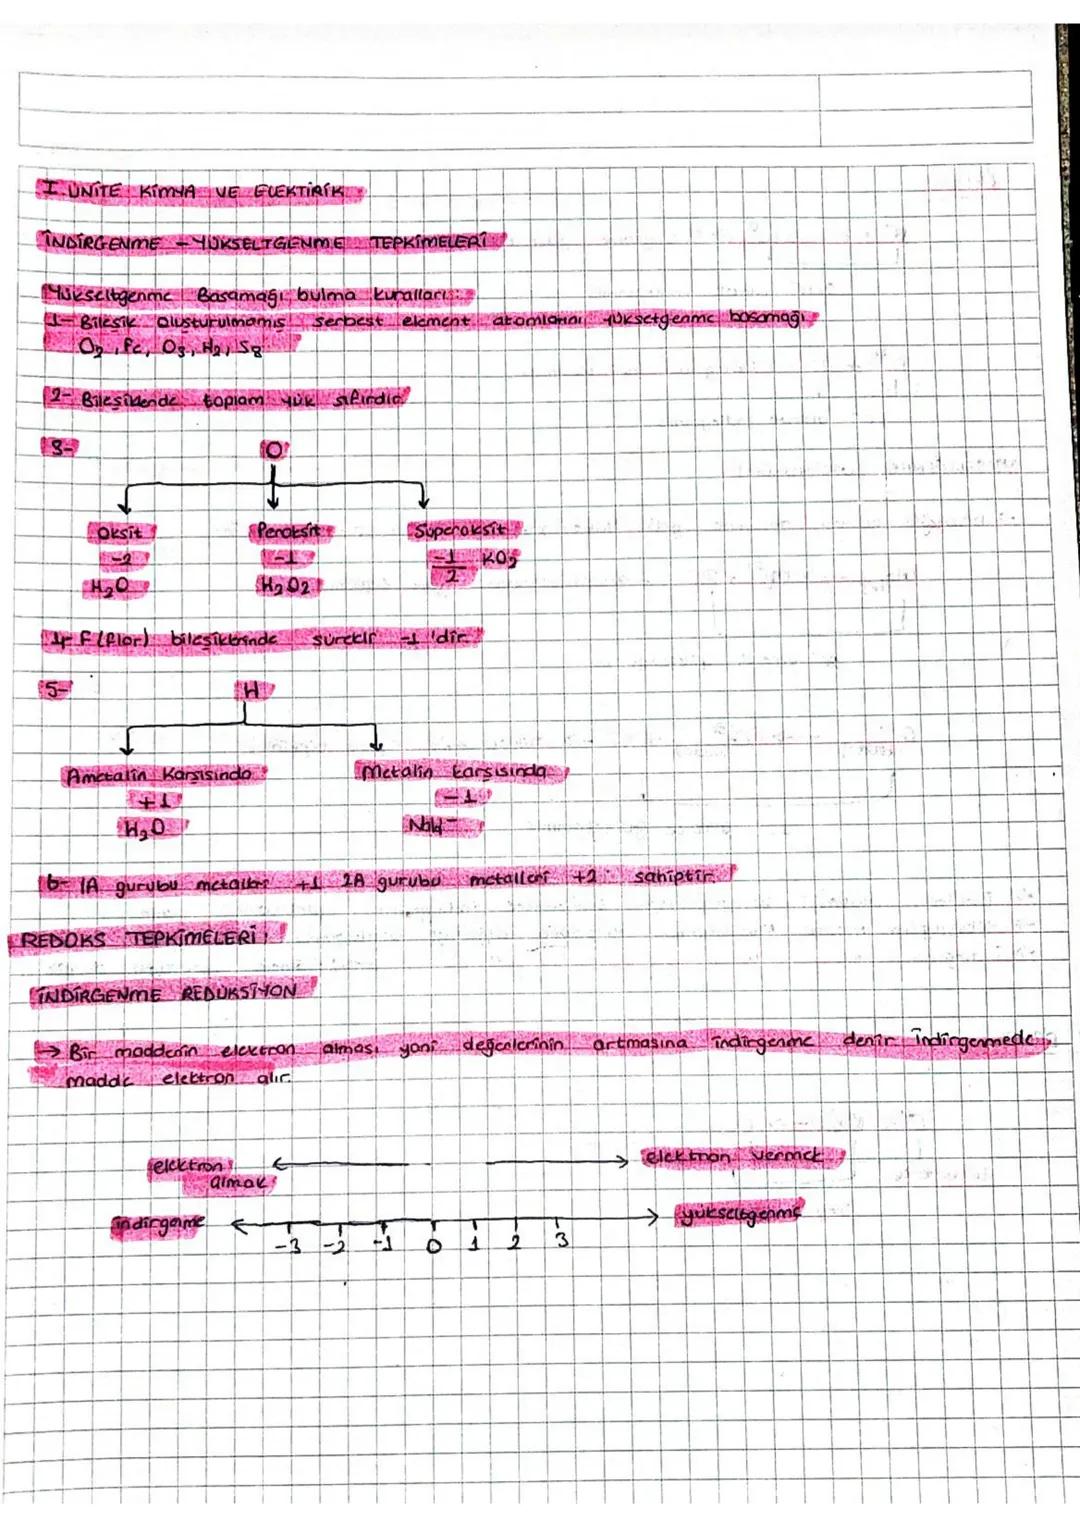 I. ÜNİTE KİMYA VE ELEKTİRİK
İNDİRGENME - YÜKSELTGENME TEPKİMELERİ
Yükseltgenme Basamağı bulma kuralları:
1- Bileşik oluşturulmamış serbest element atomlarını yüksetgenme basamağı
O2, Fe, O3, H2, S8
2- Bileşiklende toplam yük sıfırdır
3- O
Oksit Peroksit Süperoksit
-2 -1 -1/2 KO2
H2O H2O2
4- F (flor) bileşiklerinde sürekli -1'dir.
5- H
Ametalin Karşısında Metalin karşısında
+1 -1
H2O NaH-
6- 1A gurubu metaller +1 2A gurubu metalleri +2 sahiptir.
REDOKS TEPKİMELERİ
İNDİRGENME REDÜKSİYON
→ Bir maddenin elektron alması yani değerlerinin artmasına indirgenme denir İndirgenmede
madde elektron alır.
elektron ← → elektron vermek
almak
indirgenme ← → yükseltgenme
-3 -2 -1 0 1 2 3